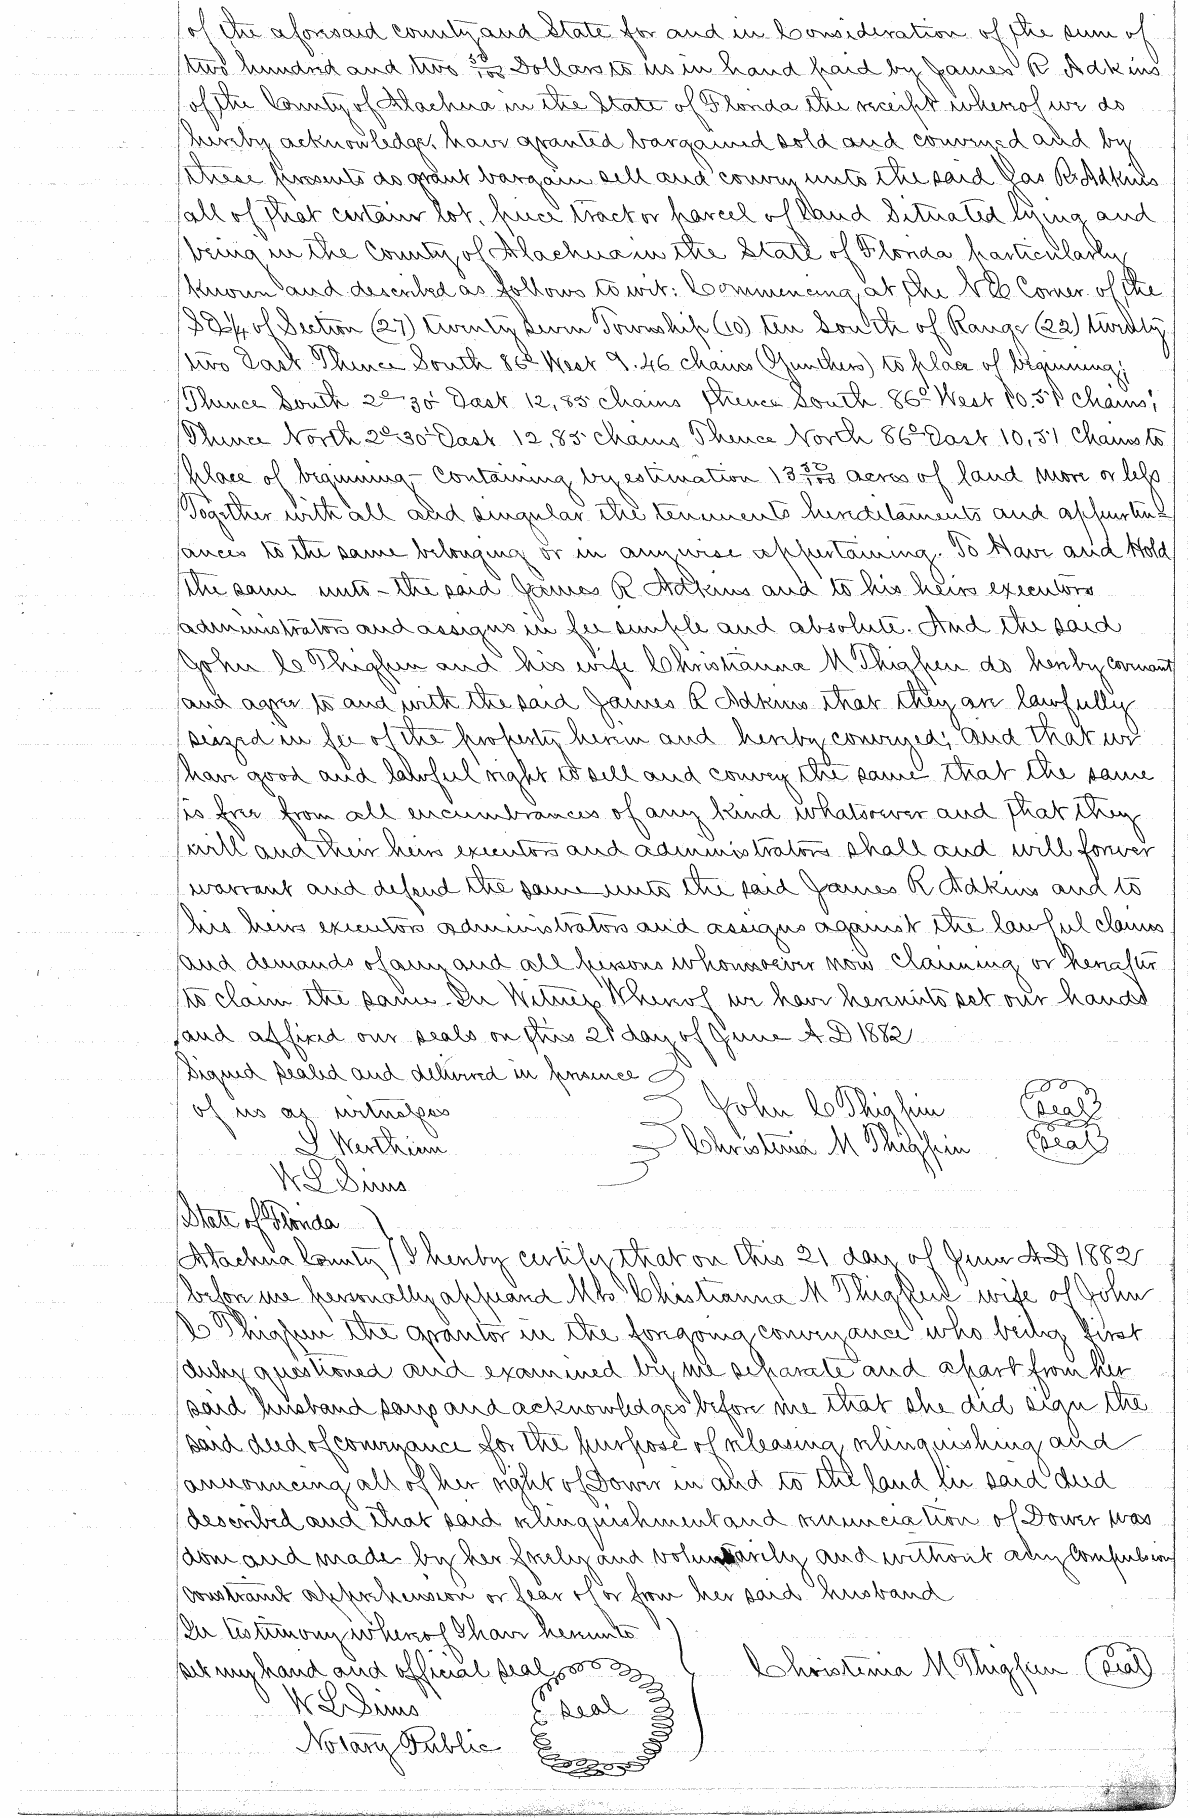 of the aforesaid county and State for and in Consideration of the sum of
two hundred and two 50/100 Dollars to us in hand paid by James R Adkins
of the County of Alachua in the State of Florida the receipt whereof we do
hereby acknowledge, have granted bargained sold and conveyed and by
these presents do grant bargain sell and convey unto the said Jas R Adkins
all of that certain lot, piece tract or parcel of land Situated lying and
being in the County of Alachua in the State of Florida particularly
known and described as follows to wit: Commencing at the NE Corner of the
SE 1/4 of Section (27) twenty seven Township (10) ten South of Range (22) twenty
two East Thence South 86° West 9.46 chains (Gunthers) to place of beginning;
Thence South 2° 30' East 12,85 chains thence South 86° West 10.51 chains;
Thence North 2° 30' East 12,85 chains Thence North 86° East 10,51 Chains to
place of beginning - Containing by estimation 13 50/100 acres of land more or less
Together with all and singular the tenements hereditaments and appurten-
ances to the same belonging or in anywise appertaining. To Have and Hold
the same unto - the said James R Adkins and to his heirs executors
administrators and assigns in fee simple and absolute. And the said
John C Thigpen and his wife Christianna M Thigpen do hereby covenant
and agree to and with the said James R Adkins that they are lawfully
seized in fee of the property herein and hereby conveyed; and that we
have good and lawful right to sell and convey the same that the same
is free from all encumbrances of any kind whatsoever and that they
will and their heirs executors and administrators shall and will forever
warrant and defend the same unto the said James R Adkins and to
his heirs executors administrators and assigns against the lawful claims
and demands of any and all persons whomsoever now claiming or hereafter
to claim the same. In Witness Whereof we have hereunto set our hands
and affixed our seals on this 21 day of June A D 1882
Signed sealed and delivered in presence
of us as witnesses John C Thigpin (seal)
L Wertheim Christenia M Thigpin (seal)
W L Sims
State of Florida
Alachua County I hereby certify that on this 21 day of June A D 1882
before me personally appeared Mrs Christianna M Thigpen wife of John
C Thigpen the grantor in the foregoing conveyance who being first
duly questioned and examined by me separate and apart from her
said husband says and acknowledges before me that she did sign the
said deed of conveyance for the purpose of releasing relinquishing and
announcing all of her right of Dower in and to the land in said deed
described and that said relinquishment and renunciation of Dower was
done and made by her freely and voluntarily and without any Compulsion
constraint apprehension or fear of or from her said husband
In testimony whereof I have hereunto
set my hand and official seal Christenia M Thigpen (seal)
W L Sims seal
Notary Public